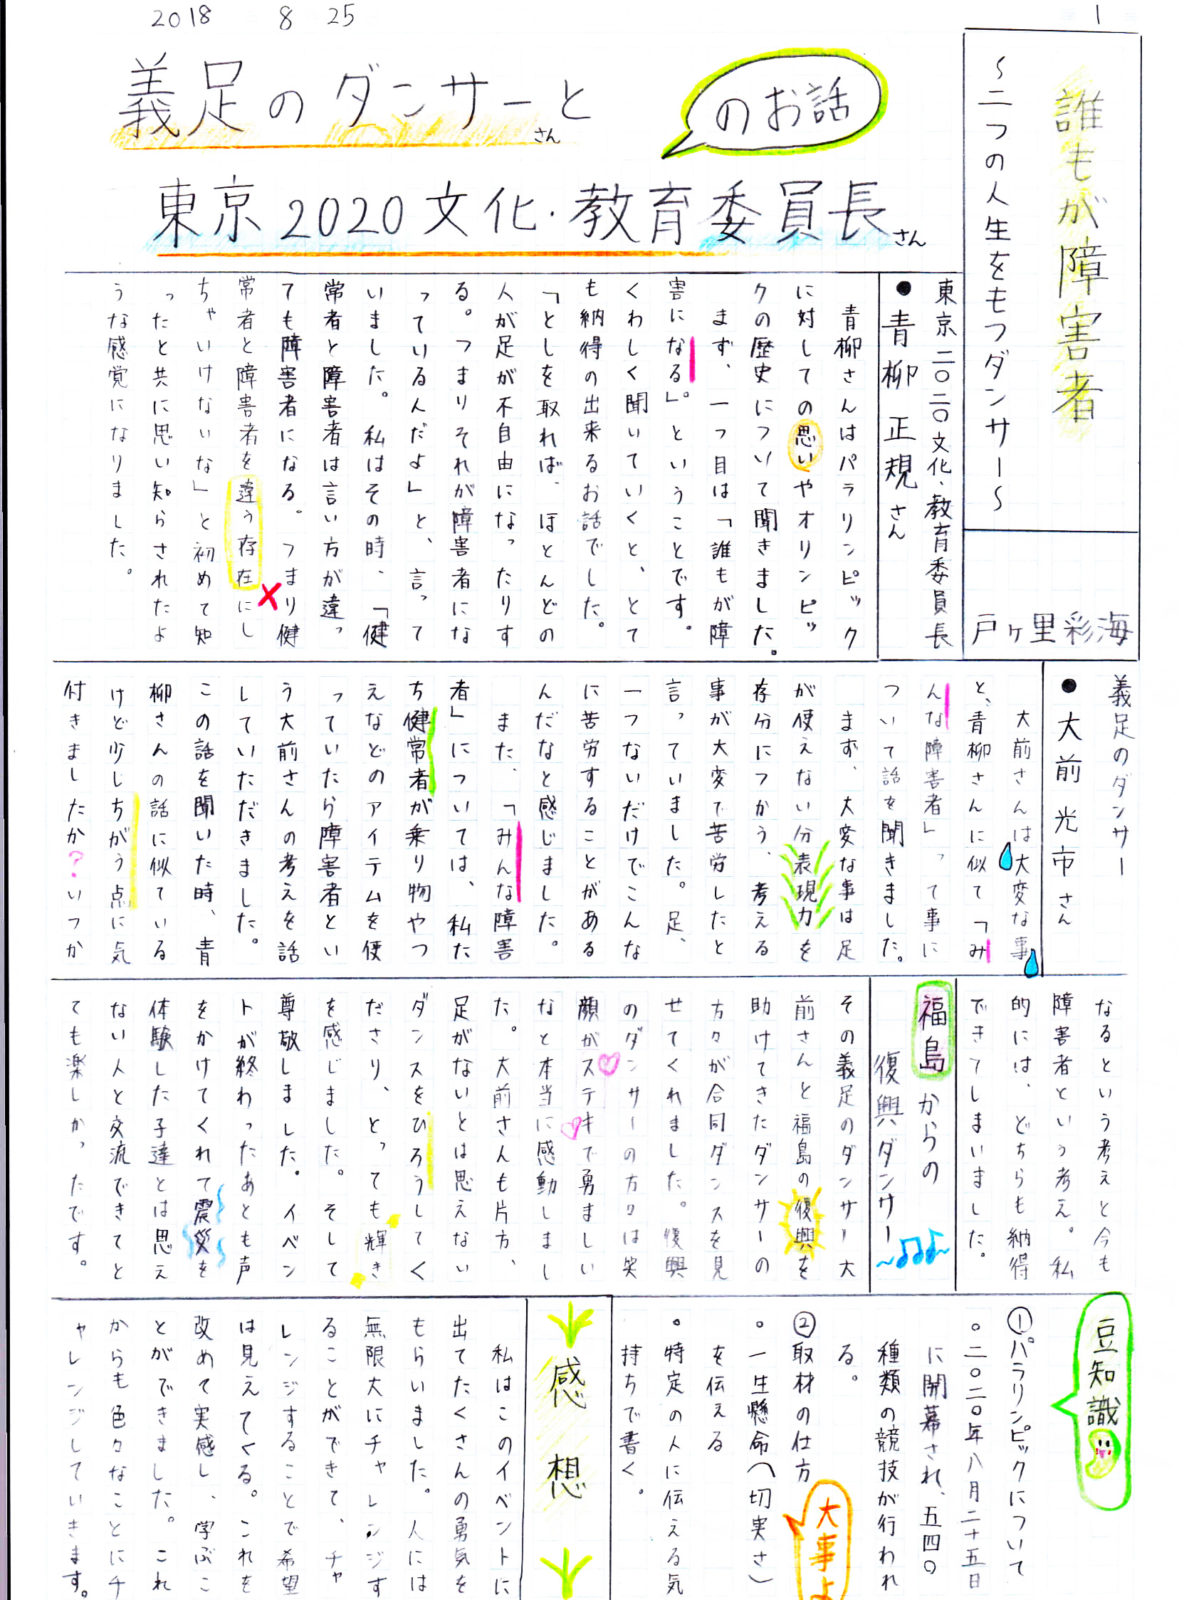 2018 8 25
1
誰もが障害者
～二つの人生をもつダンサー～
戸ヶ里彩海
義足のダンサーさんと
東京2020文化・教育委員長さん
のお話
東京二〇二〇文化・教育委員長
●青柳正規さん
青柳さんはパラリンピック
に対しての思いやオリンピッ
クの歴史について聞きました。
まず、一つ目は「誰もが障
害になる」。ということです。
くわしく聞いていくと、とて
も納得の出来るお話でした。
「としを取れば、ほとんどの
人が足が不自由になったりす
る。つまりそれが障害者にな
っている人だよ」と、言って
いました。私はその時、「健
常者と障害者は言い方が違っ
ても障害者になる。つまり健
常者と障害者を違う存在にし
ちゃいけないな」と初めて知
ったと共に思い知らされたよ
うな感覚になりました。
義足のダンサー
●大前光市さん
大前さんは大変な事
と、青柳さんに似て「み
んな障害者」って事に
ついて話を聞きました。
まず、大変な事は足
が使えない分表現力を
存分につかう、考える
事が大変で苦労したと
言っていました。足、
一つないだけでこんな
に苦労することがある
んだなと感じました。
また、「みんな障害
者」については、私た
ち健常者が乗り物やつ
えなどのアイテムを使
っていたら障害者とい
う大前さんの考えを話
していただきました。
この話を聞いた時、青
柳さんの話に似ている
けど少しちがう点に気
付きましたか？いつか
なるという考えと今も
障害者という考え。私
的には、どちらも納得
できてしまいました。
福島からの
復興ダンサー
その義足のダンサー大
前さんと福島の復興を
助けてきたダンサーの
方々が合同ダンスを見
せてくれました。復興
のダンサーの方々は笑
顔がステキで勇ましい
なと本当に感動しまし
た。大前さんも片方、
足がないとは思えない
ダンスをひろうしてく
ださり、とっても輝き
を感じました。そして
尊敬しました。イベン
トが終わったあとも声
をかけてくれて震災を
体験した子達とは思え
ない人と交流できてと
ても楽しかったです。
豆知識
①パラリンピックについて
・二〇二〇年八月二十五日
に開幕され、五四〇
種類の競技が行われ
る。
②取材の仕方
・一生懸命(切実さ)
を伝える
・特定の人に伝える気
持ちで書く。
大事よ
感想
私はこのイベントに
出てたくさんの勇気を
もらいました。人には
無限大にチャレンジす
ることができて、チャ
レンジすることで希望
は見えてくる。これを
改めて実感し、学ぶこ
とができました。これ
からも色々なことにチ
ャレンジしていきます。